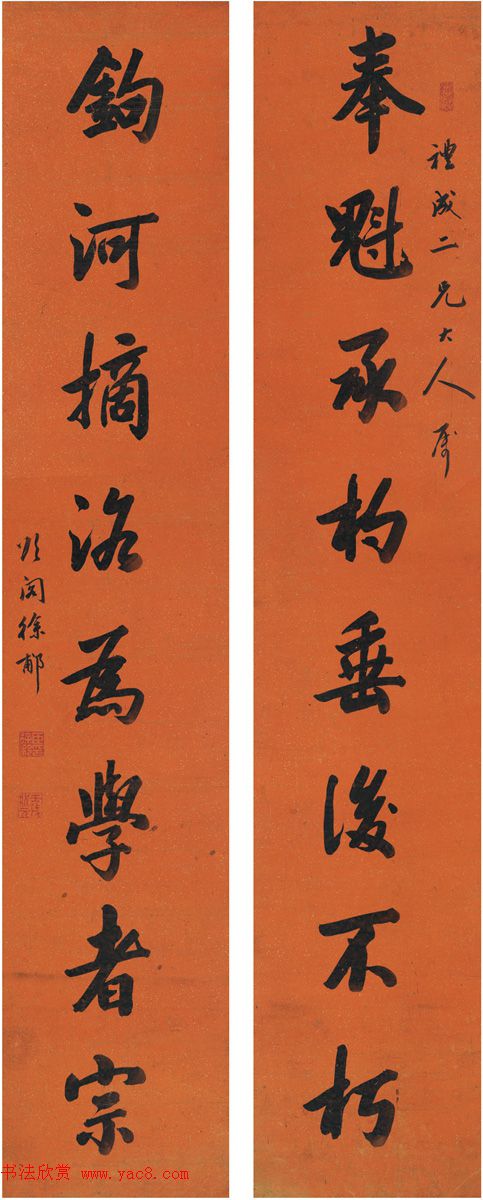 禮成二兄大人屬
奉魁承杓垂後不朽
鉤河摘洛為學者宗
頌閣徐郙
书法欣赏 www.yac8.com